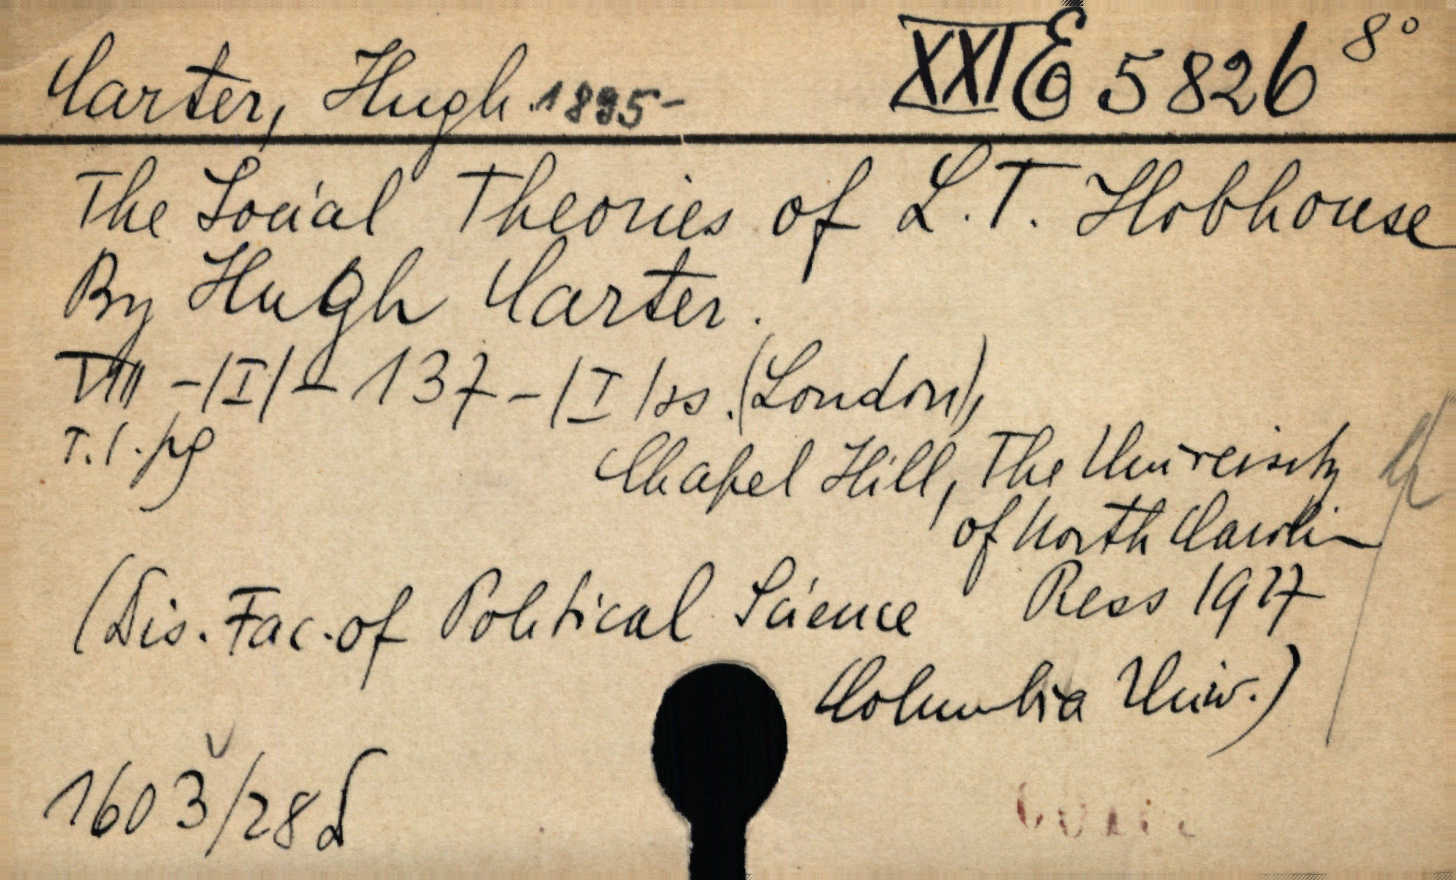 Carter, Hugh 1895- XXI E 5826 8°
The Social Theories of L. T. Hobhouse
By Hugh Carter.
VIII -/I/- 137 -/I/ ss. (London),
T. 1. pg Chapel Hill, The University
of North Carolin
Press 1927
(Dis. Fac. of Political Science
Columbia Univ.)
1603/28 d